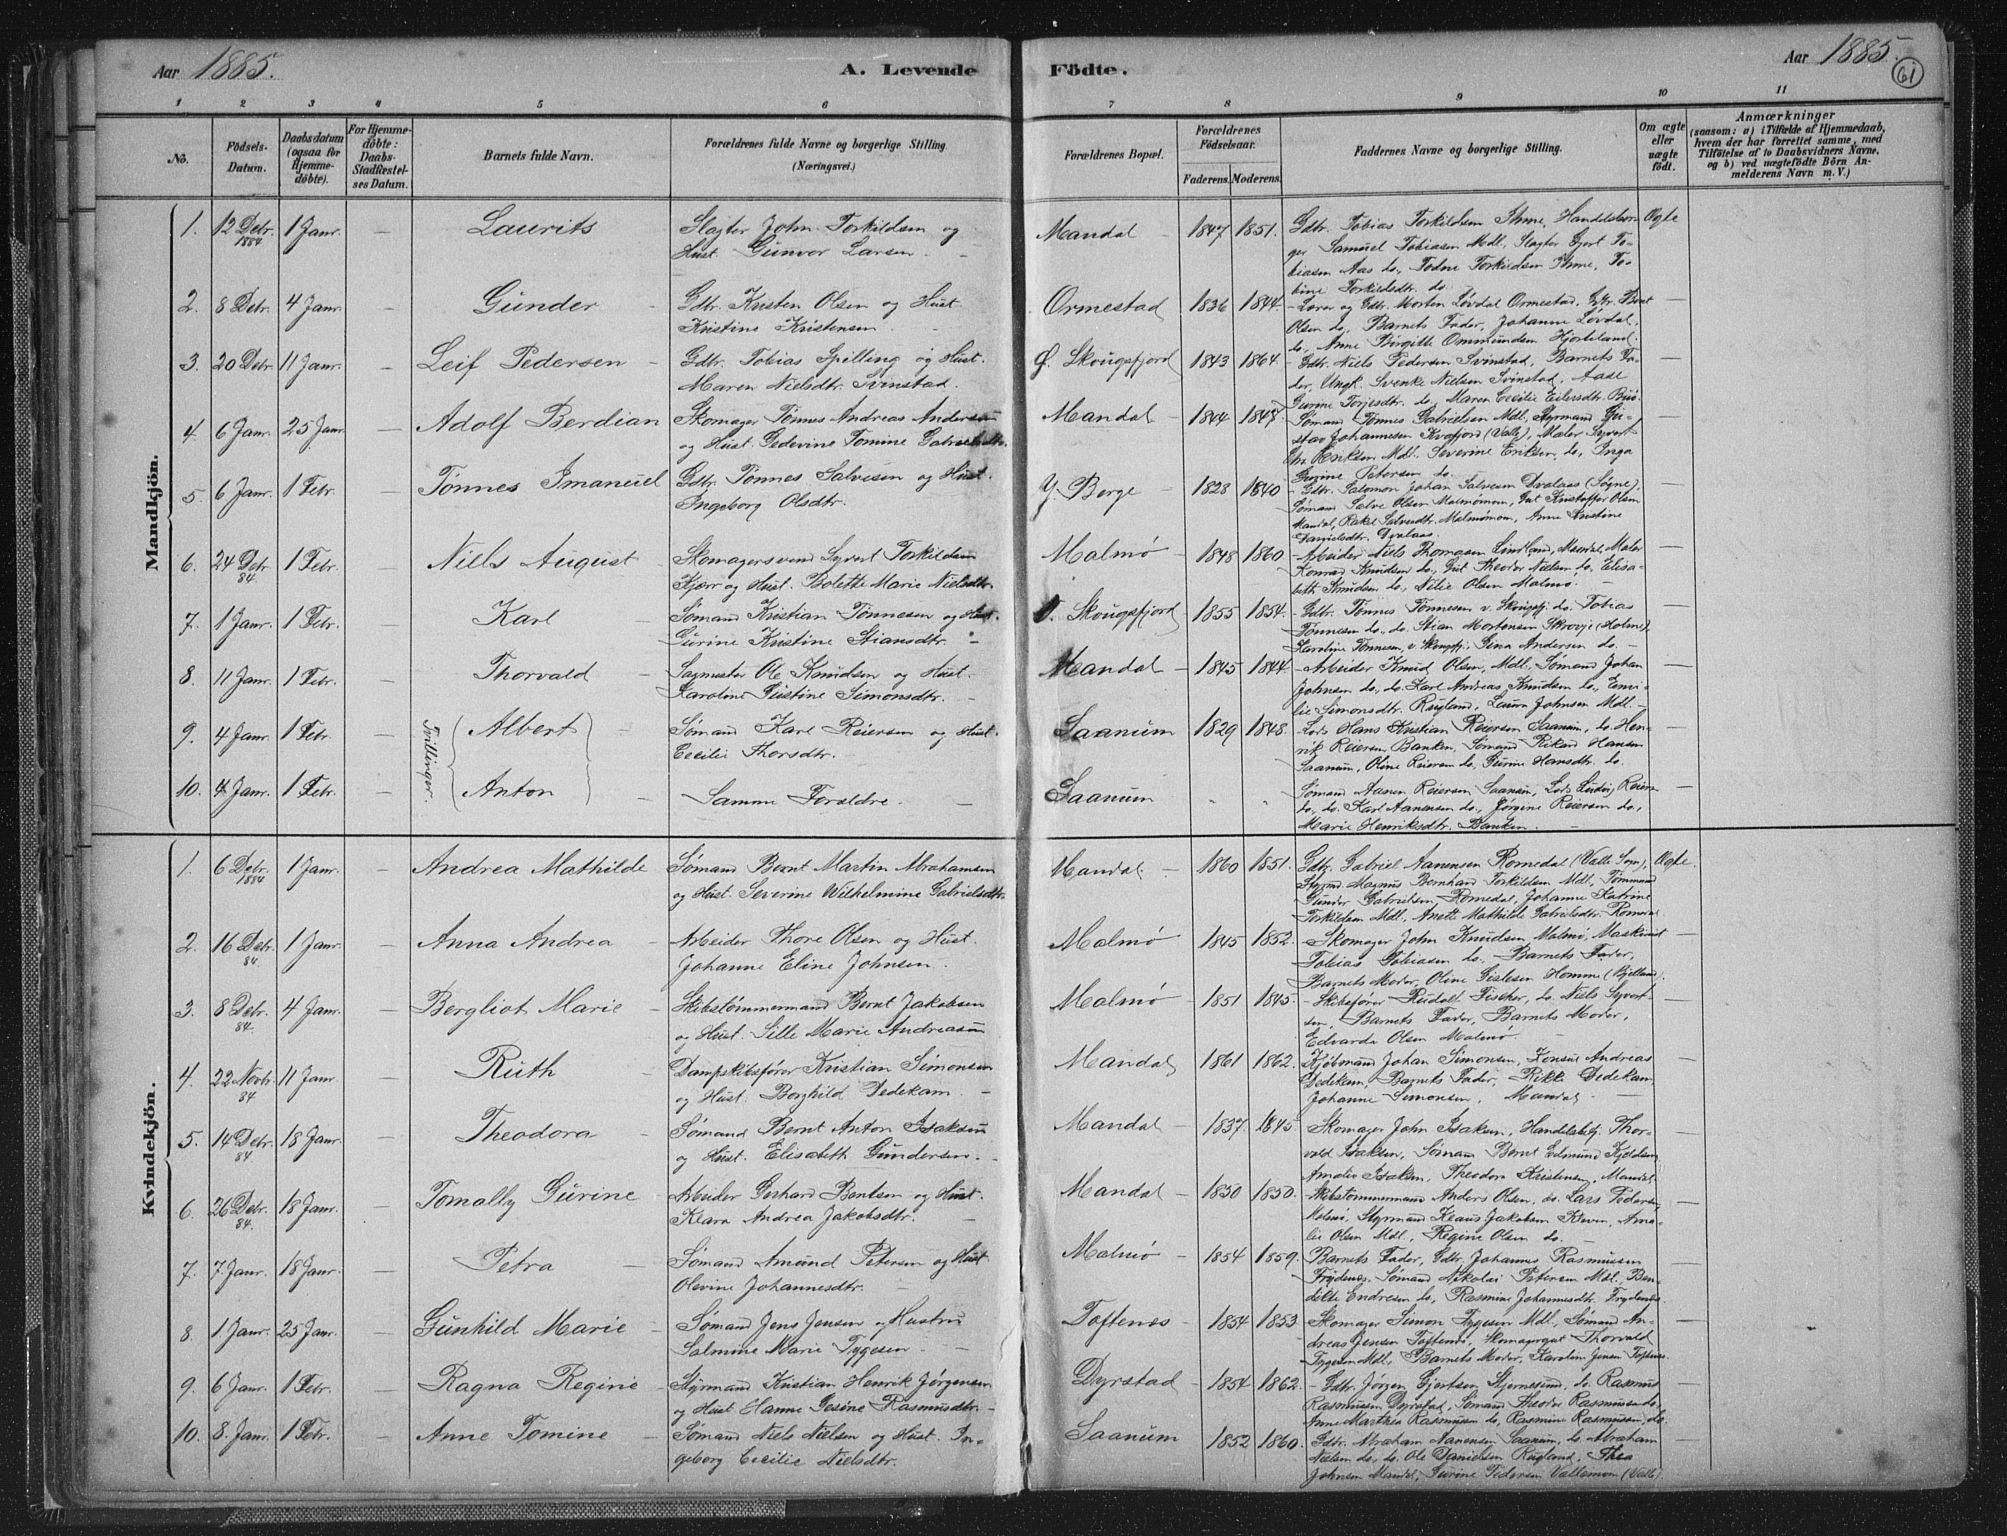 Aar 1885.
A. Levende Födte.
Aar 1885.
61
1 2 3 4 5 6 7 8 9 10 11
No.
Födsels-Datum.
Daabsdatum (ogsaa for Hjemme-döbte).
For Hjemme-döbte: Daabs-Stadfæstel-ses Datum.
Barnets fulde Navn.
Forældrenes fulde Navne og borgerlige Stilling. (Næringsvei.)
Forældrenes Bopæl.
Forældrenes Födselsaar.
Faderens. Moderens.
Faddernes Navne og borgerlige Stilling.
Om ægte eller uægte födt.
Anmærkninger
(saasom: a) i Tilfælde af Hjemmedaab,
hvem der har forrettet samme, med
Tilföielse af to Daabsvidners Navne.
og b) ved uægtefödte Börn An-
melderens Navn m. V.)
Mandkjön.
1. 12 Debr. 1884 1 Janr. — Laurits
Slagter John Torkildsen og
Hust. Gunvor Larsen.
Mandal — 1847 1851.
Gdtr. Tobias Torkildsen Ihme, Handelsbor-
ger Samuel Tobiasen Mdl. Slagter Gjert To-
biasen Aas do., Todne Torkildsen Ihme, To-
bine Torkildsdtr. do.
Ægte
2. 8 Debr. 4 Janr. — Gunder —
Gdtr. Kristen Olsen og Hust.
Kristine Kristensen
Ormestad 1836 1844.
Lars og Gdtr. Morten Løvdal Ormestad, Bernt
Olsen do., Barnets Fader, Johanne Løvdal,
do., Anne Birgitte Ommundsen Hjorteland. —
3. 20 Debr. 11 Janr. — Leif Pedersen —
Gdtr. Tobias Spilling og Hust.
Maren Nielsdtr. Svinstad.
Ø. Skougsfjord 1843 1864.
Gdtr. Niels Pedersen Svinstad, Barnets Fa-
der, Ungk. Svenke Nielsen Svinstad, Aase
Gurine Torjesdtr. do., Maren Cecilie Eilersdtr. —
4. 6 Janr. 25 Janr. — Adolf Berdian
Skomager Tønnes Andreas Andersen
og Hust. Gedevine Tomine Gabrielsdtr.
Mandal — 1844 1847
Sømand Tønnes Gabrielsen Mdl. Styrmand Gu-
stav Johannesen Kvafjord (Valle), Maler Syvert
Chr. Eriksen Mdl. Severine Eriksen do., Inga
Gurine Petersen do. —
5. 6 Janr. 1 Febr. — Tønnes Imanuel
Gdtr. Tønnes Salvesen og Hust.
Ingeborg Olsdtr.
Y. Berge — 1828 1840
Gdtr. Salomon Johan Salvesen Dvalaas (Søgne),
Sømand Salve Olsen Malmømon, Gut Kristoffer Olsen
Mandal, Rakel Salvesdtr. Malmømon, Anne Kristine
Danielsdtr. Dvalaas. —
6. 24 Debr. 84 1 Febr. — Niels August —
Skomagersvend Syvert Torkildsen
Kjær og Hust. Bolette Marie Nielsdtr.
Malmø — 1848 1860.
Arbeider Niels Thomasen Lindland, Mandal, Maler
Konrad Knudsen do., Gut Theodor Nielsen do. Elisa-
beth Knudsen do., Nilie Olsen Malmø. —
7. 1 Janr. 1 Febr. — Karl —
Sømand Kristian Tønnesen og Hust.
Gurine Kristine Stiansdtr.
V. Skougsfjord 1855 1854.
Gdtr. Tønnes Tønnesen v. Skougsfj. do. Tobias
Tønnesen do., do. Stian Mortensen Skrovje (Holme),
Karoline Tønnesen, v. Skougsfj. Gina Andersen do. —
8. 11 Janr. 1 Febr. — Thorvald —
Sagmester Ole Knudsen og Hust.
Karoline Justine Simonsdtr.
Mandal — 1845 1844.
Arbeider Knud Olsen, Mdl., Sømand Johan
Johnsen do., do. Karl Andreas Knudsen do., Emi-
lie Simonsdtr. Rugland, Laura Johnsen Mdl. —
Tvillinger.
9. 4 Janr. 1 Febr. Albert —
Sømand Karl Reiersen og Hust.
Cecilie Thorsdtr.
Saanum 1829 1848.
Lods Hans Kristian Reiersen Saanum, do. Hen-
rik Reiersen Banken, Sømand Rikard Hansen
Saanum, Oline Reiersen do., Gurine Hansdtr. do. —
10. 4 Janr. 1 Febr. Anton —
Samme Forældre. —
Saanum " "
Sømand Aanen Reiersen Saanum, Lods Reier-
do., do. Karl Aanensen do., Jørgine Reiersen do.,
Marie Henriksdtr. Banken. —
Kvindekjön.
1. 6 Debr. 1884 1 Janr. — Andrea Mathilde
Sømand Bernt Martin Abrahamsen
og Hust. Severine Wilhelmine Gabrielsdtr.
Mandal — 1860 1851.
Gdtr. Gabriel Aanensen Romedal (Valle Sogn),
Styrmd Magnus Bernhard Torkildsen Mdl., Tømmermd
Gunder Gabrielsen Romedal, Johanne Katrine
Torkildsen Mdl., Anette Mathilde Gabrielsdtr. Romedal
Ægte.
2. 16 Debr. 84. 1 Janr. — Anna Andrea —
Arbeider Thore Olsen og Hust.
Johanne Eline Johnsen.
Malmø — 1845 1852.
Skomager John Knudsen Malmø, Maskinist
Tobias Tobiasen do., Barnets Fader,
Barnets Moder, Oline Gislesen Homme (Bjelland). —
3. 8 Debr. 84. 4 Janr. — Bergliot Marie —
Skibstømmermand Bernt Jakobsen
og Hust. Sille Marie Andreasen
Malmø — 1851 1845.
Skibsfører Rudolf Fischer, do. Niels Syvert-
sen, Barnets Fader, Barnets Moder,
Edvarda Olsen Malmø. —
4. 22 Novbr. 84 11 Janr. — Ruth —
Dampskibsfører Kristian Simonsen
og Hust. Borghild Dedekam. —
Mandal 1861 1862.
Kjøbmand Johan Simonsen, Konsul Andreas
Dedekam, Barnets Fader, Rikke Dedekam,
Johanne Simonsen, Mandal. —
5. 14 Debr. 84 18 Janr. — Theodora —
Sømand Bernt Anton Isaksen
og Hust. Elisabeth Gundersen. —
Mandal — 1837 1845
Skomager John Isaksen, Handelsbetj. Thor-
vald Isaksen, Sømand Bernt Edmund Kjeldsen,
Amalie Isaksen, Theodora Kristensen, Mandal —
6. 26 Debr. 84. 18 Janr. — Tomally Gurine
Arbeider Gerhard Bentsen og Hust.
Klara Andrea Jakobsdtr.
Mandal — 1850 1850.
Skibstømmermand Anders Olsen, do. Lars Pedersen
Malmø, Styrmand Klaus Jakobsen Kleven, Ama-
lie Olsen Mdl., Regine Olsen do. —
7. 7 Janr. 18 Janr. — Petra —
Sømand Amund Petersen og Hust
Olevine Johannesdtr.
Malmø — 1854 1859.
Barnets Fader, Gdtr. Johannes Rasmussen
Frydenes, Sømand Nikolai Petersen Mdl., Ben-
dikte Endresen do., Rasmine Johannesdtr. Frydenes. —
8. 1 Janr. 25 Janr. — Gunhild Marie —
Sømand Jens Jensen og Hustru
Salmine Marie Tygesen. —
Toftenes — 1854 1853
Skomager Simon Tygesen Mdl., Sømand An-
dreas Jensen Toftenes, Skomagergut Thorvald
Tygesen Mdl., Barnets Moder, Karoline Jensen Toftenes. —
9. 6 Janr. 1 Febr. — Ragna Regine —
Styrmand Kristian Henrik Jørgensen
og Hust Hanne Gesine Rasmusdtr. —
Dyrstad — 1854 1862.
Gdtr. Jørgen Gjertsen Stjernesund, do. Rasmus
Rasmussen Dyrstad, Sømand Theodor Rasmussen do.
Anne Marthea Rasmussen do, Rasmine Rasmussen, do. —
10. 8. Janr. 1 Febr. — Anne Tomine —
Sømand Niels Nielsen og Hust. In-
geborg Cecilie Nielsdtr.
Saanum — 1852 1860.
Gdtr. Abraham Aanensen Saanum, do. Abraham
Nielsen do., do. Ole Danielsen Rugland, Thea
Johnsen Mandal, Gurine Pedersen Vallemon (Valle). —